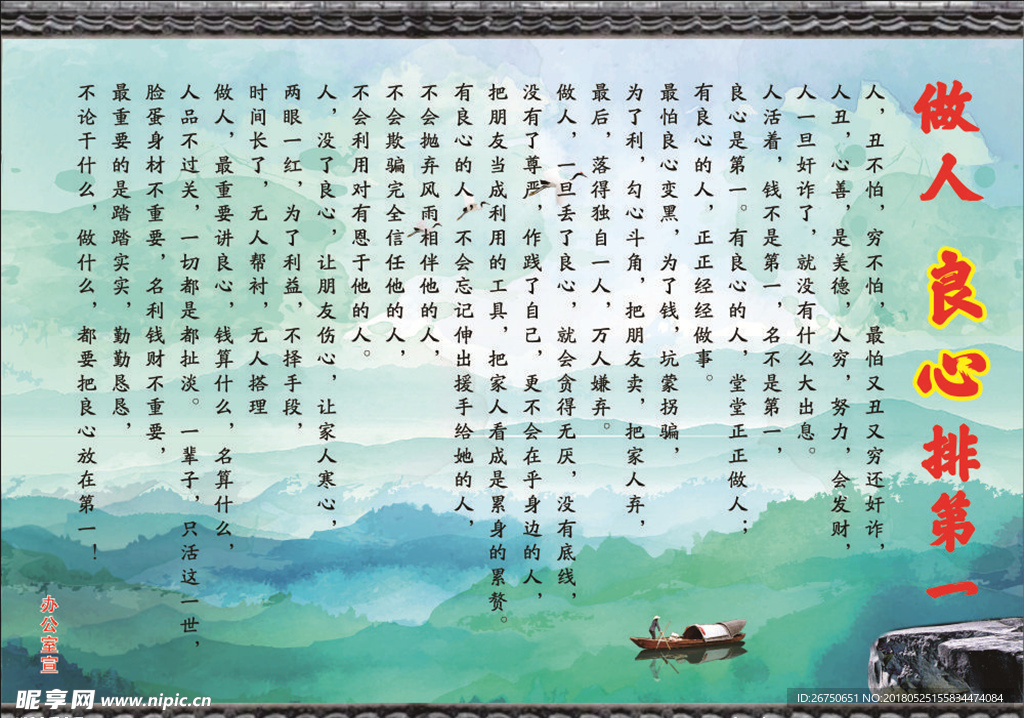 做人 良心排第一
人，丑不怕，穷不怕，最怕又丑又穷还奸诈，
人丑，心善，是美德，人穷，努力，会发财，
人一旦奸诈了，就没有什么大出息。
人活着，钱不是第一，名不是第一，
良心是第一。有良心的人，堂堂正正做人；
有良心的人，正正经经做事。
最怕良心变黑，为了钱，坑蒙拐骗，
为了利，勾心斗角，把朋友卖，把家人弃，
最后，落得独自一人，万人嫌弃。
做人，一旦丢了良心，就会贪得无厌，没有底线，
没有了尊严，作践了自己，更不会在乎身边的人，
把朋友当成利用的工具，把家人看成是累身的累赘。
有良心的人，不会忘记伸出援手给她的人，
不会抛弃风雨相伴他的人，
不会欺骗完全信任他的人，
不会利用对有恩于他的人。
人，没了良心，让朋友伤心，让家人寒心，
两眼一红，为了利益，不择手段，
时间长了，无人帮衬，无人搭理
做人，最重要讲良心，钱算什么，名算什么，
人品不过关，一切都是都扯淡。一辈子，只活这一世，
脸蛋身材不重要，名利钱财不重要，
最重要的是踏踏实实，勤勤恳恳，
不论干什么，做什么，都要把良心放在第一！
办公室宣
昵享网 www.nipic.cn
ID:26750651 NO:20180525155834474084